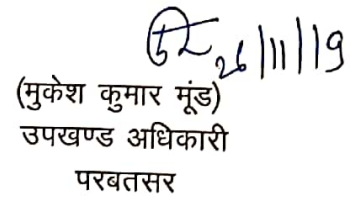 26/11/19
(मुकेश कुमार मूंड)
उपखण्ड अधिकारी
परबतसर